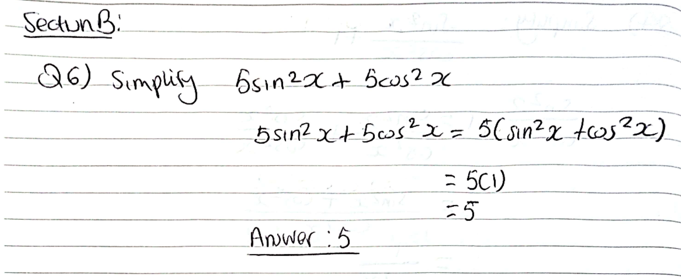 Section B:
Q6) Simplify 5sin²x + 5cos²x
5sin²x + 5cos²x = 5(sin²x + cos²x)
= 5(1)
= 5
Answer : 5